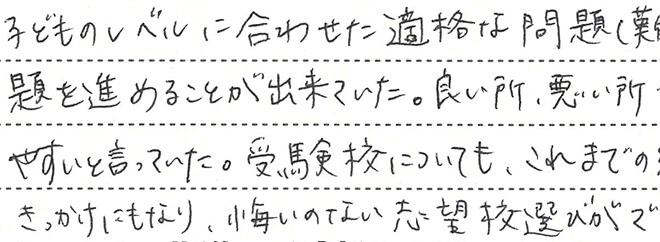 子どものレベルに合わせた適格な問題(難
題を進めることが出来ていた。良い所、悪い所
やすいと言っていた。受験校についても、これまでの
きっかけにもなり、悔いのない志望校選びがで